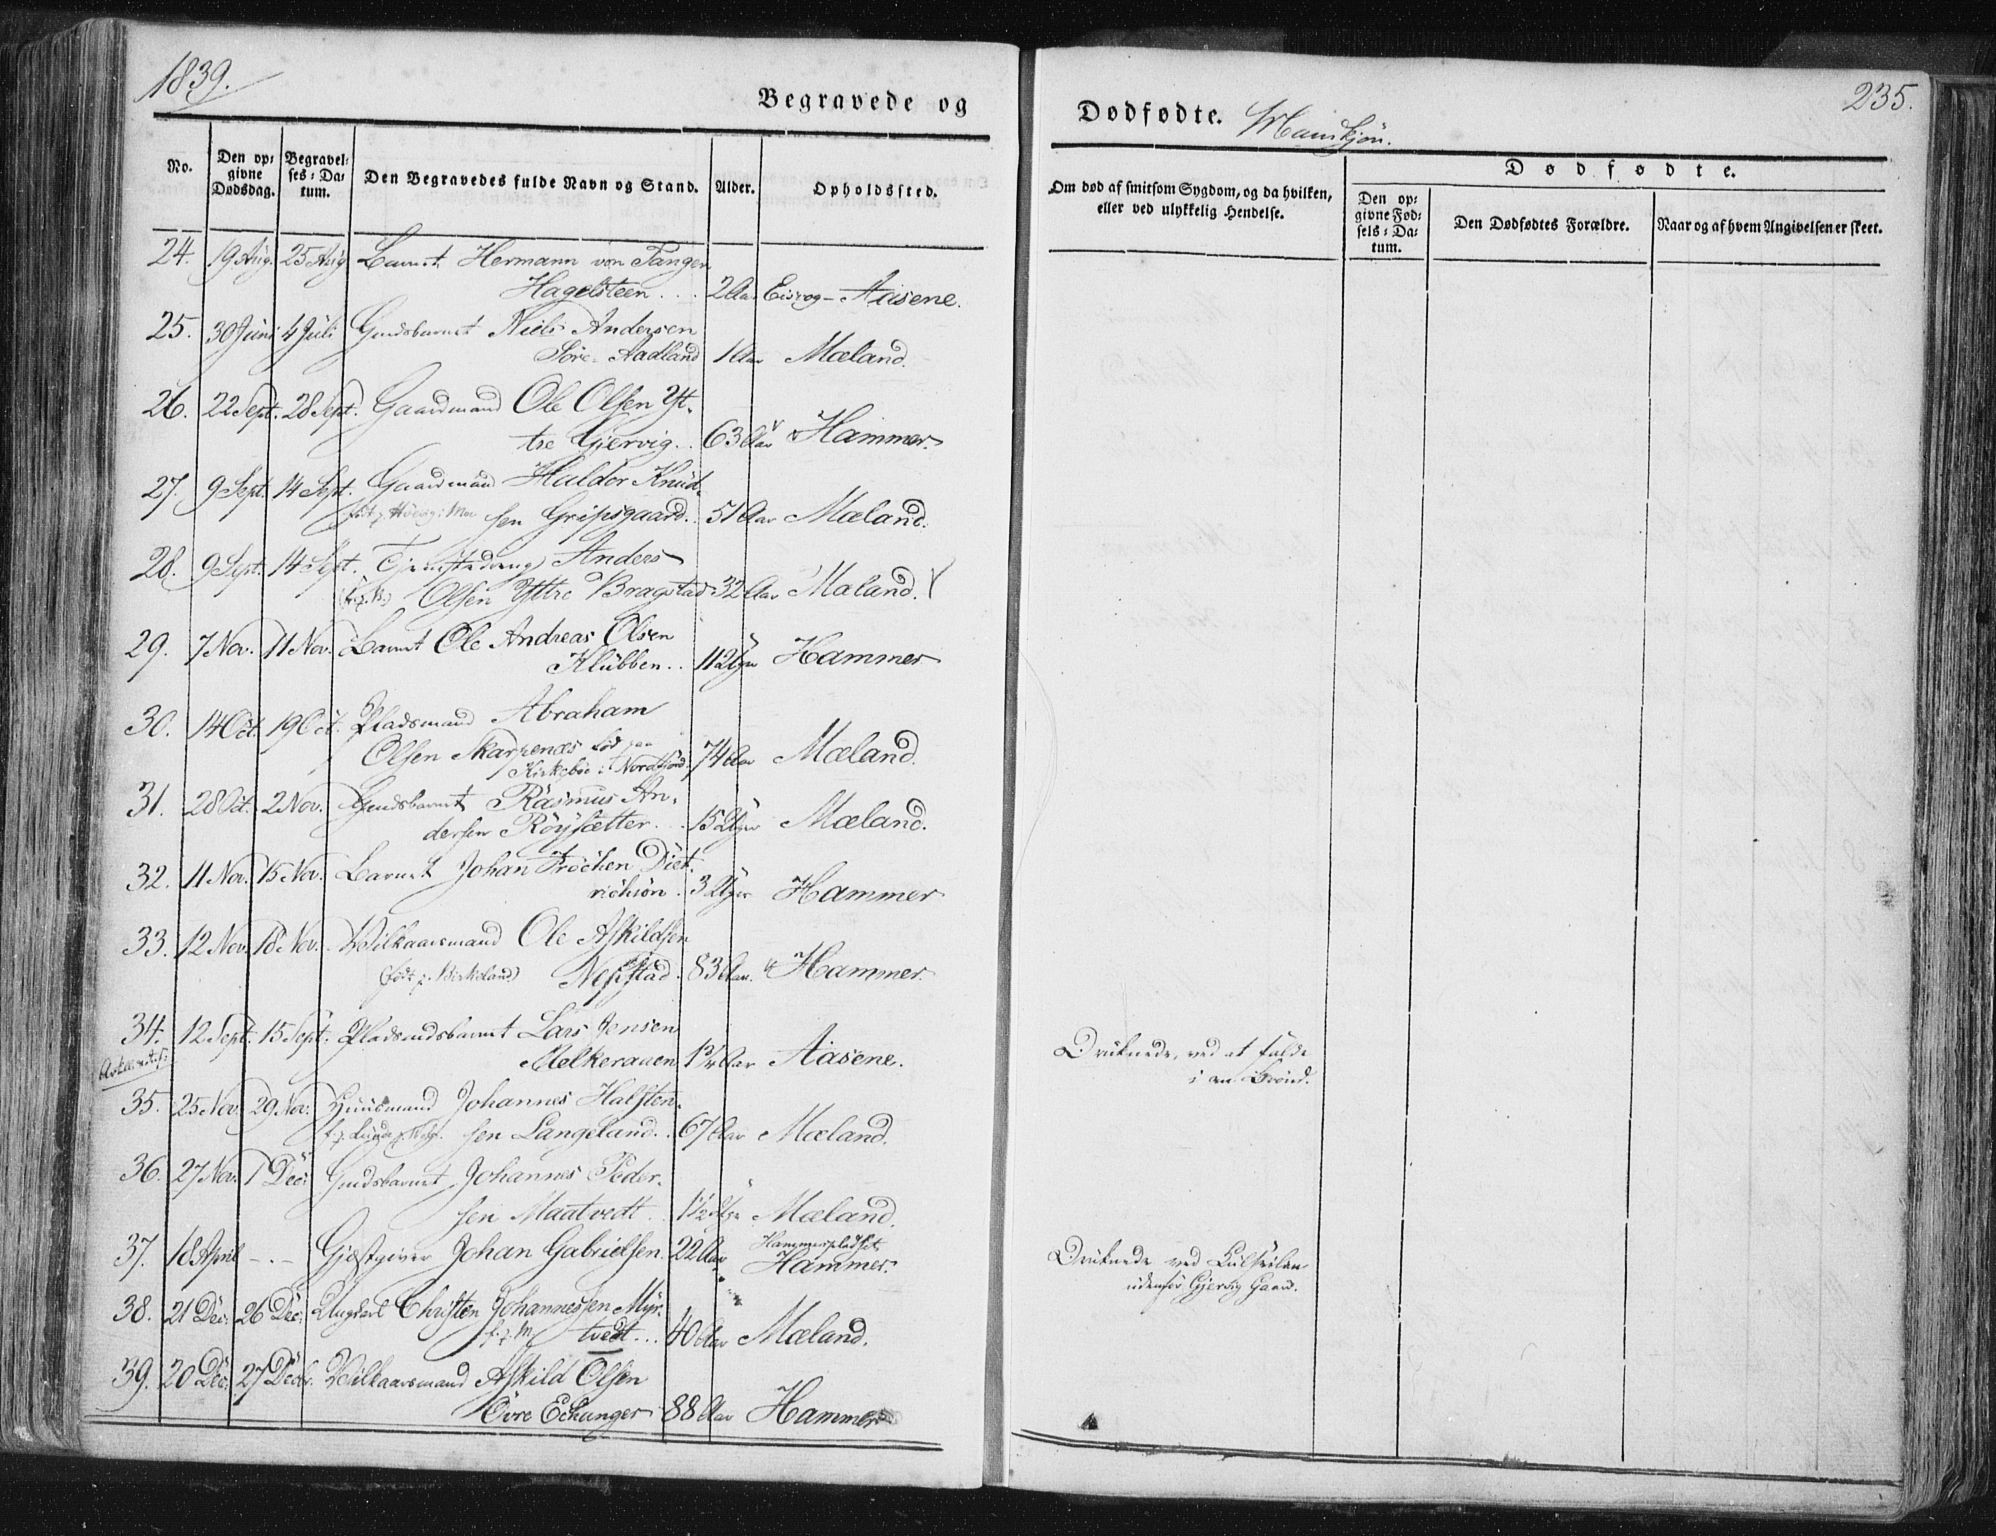 1839.
Begravede og
Dødfødte. Mandkjøn.
235.
No.
Den opgivne Dødsdag.
Begravelses-Datum.
Den Begravedes fulde Navn og Stand.
Alder.
Opholdssted.
Om død af smitsom Sygdom, og da hvilken,
eller ved ulykkelig Hendelse.
Dødfødte.
Den opgivne Fødsels-Datum.
Den Dødfødtes Forældre.
Naar og af hvem Angivelsen er skeet.
24. 19 Aug. 25 Aug. Barnet Hermann von Tangen
Hagelsteen . . . 2 Aar Aasene.
25. 30 Juni 4 Juli Gmdsbarnet Niels Andersen
Söre-Aadland 1 Aar Mæland.
26. 22 Sept. 28 Sept. Gaardmand Ole Olsen Yt-
tre Gjervig. . 63 Aar Hammer.
27. 9 Sept. 14 Sept. Gaardmand Haldor Knud-
sen Gripsgaard. . 51 Aar Mæland.
28. 9 Sept. 14 Sept. Tjenestedreng Anders
Olsen Yttre Bragstad 32 Aar Mæland.
29. 7 Nov. 11 Nov. Barnet Ole Andreas Olsen
Klübben . . 11 Uger Hammer
30. 14 Oct. 19 Oct. Pladsmand Abraham
Olsen Skarpenæs fød paa
Kirkeböe i Nordfjord. 74 Aar Mæland.
31. 28 Oct. 2 Nov. Gmdsbarnet Rasmus An-
dersen Röysætter. . . 15 Uger Mæland.
32. 11 Nov. 15 Nov. Barnet Johan Fröchen Diet-
richsön . 3 Uger Hammer
33. 12 Nov. 18 Nov. Vilkaarsmand Ole Askildsen
(født p. Birkeland) Nepstad. 83 Aar. Hammer.
34. 12 Sept. 15 Sept. Pladsmdsbarnet Lars Jensen
Melkerauen 1 3/4 Aar Aasene.
Druknede, ved at falde
i en Brønd.
35. 25 Nov. 29 Nov. Huusmand Johannes Halsten-
sen Langeland. . 67 Aar Mæland.
36. 27 Nov. 1 Dec. Gmdsbarnet Johannes Peder-
sen Maatvedt . . 1 1/2 Mæland.
37. 18 April - . - Gjæstgiver Johan Gabrielsen. 22 Aar Hammerpladset
Hammer.
Druknede ved
udenfor Gjervig Gaard.
38. 21 Dec. 26 Dec. Ungkarl Christen Johannessen Myr-
f. p. M. tvedt . . . 40 Aar Mæland.
39. 20 Dec. 27 Decbr. Vilkaarsmand Askild Olsen
Övre Echanger 88 Aar Hammer